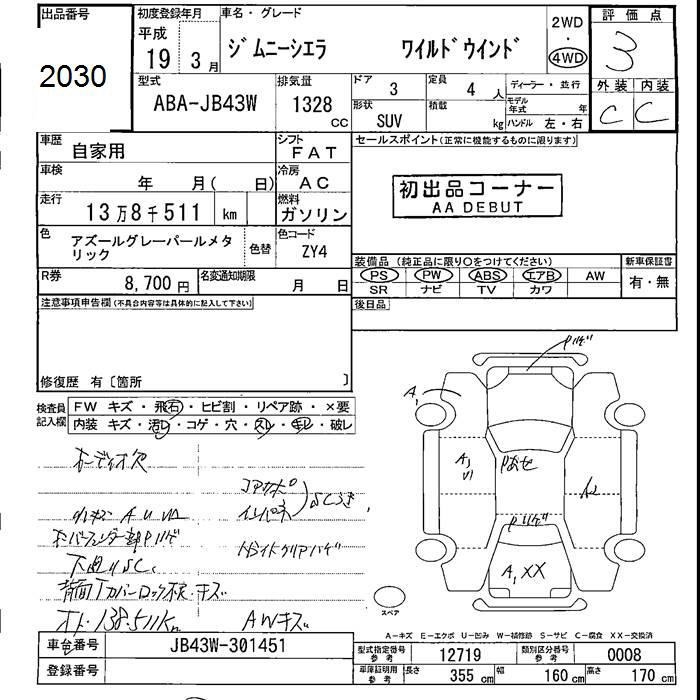 出品番号
2030
初度登録年月
平成
19年 3月
車名・グレード
ジムニーシエラ ワイルドウインド
2WD
・
4WD
評価点
3
外装 内装
C C
型式
ABA-JB43W
排気量
1328
CC
ドア
3
定員
4 人
ディーラー・並行
形状
SUV
積載
kg
モデル年式 年
ハンドル 左・右
車歴
自家用
シフト
FAT
車検
年 月( 日)
冷房
AC
走行
13万8千511 km
燃料
ガソリン
色
アズールグレーパールメタリック
色替
色コード
ZY4
R券
8,700円
名変通知期限
月 日
セールスポイント(正常に機能するものに限ります)
初出品コーナー
AA DEBUT
装備品(純正品に限り○をつけてください)
新車保証書
PS PW ABS エアB AW
SR ナビ TV カワ
有・無
後日品
注意事項申告欄(不具合内容等は具体的に記入して下さい)
修復歴 有〔箇所 〕
検査員
記入欄
FW キズ・飛石・ヒビ割・リペア跡・×要
内装 キズ・汚レ・コゲ・穴・スレ・キレ・破レ
オーディオ欠
コアサポ
インパネ
下回りSC
背面Tカバーロック不良・キズ
オド 138,511Km
AWキズ
Pハゲ
A1
A1
U1
Pあせ
Pハゲ
A1 XX
スペア
A-キズ E-エクボ U-凹み W-補修跡 S-サビ C-腐食 XX-交換済
車台番号
JB43W-301451
登録番号
型式指定番号
参考
12719
類別区分番号
参考
0008
車庫証明用
参考
長さ 355 cm 幅 160 cm 高さ 170 cm